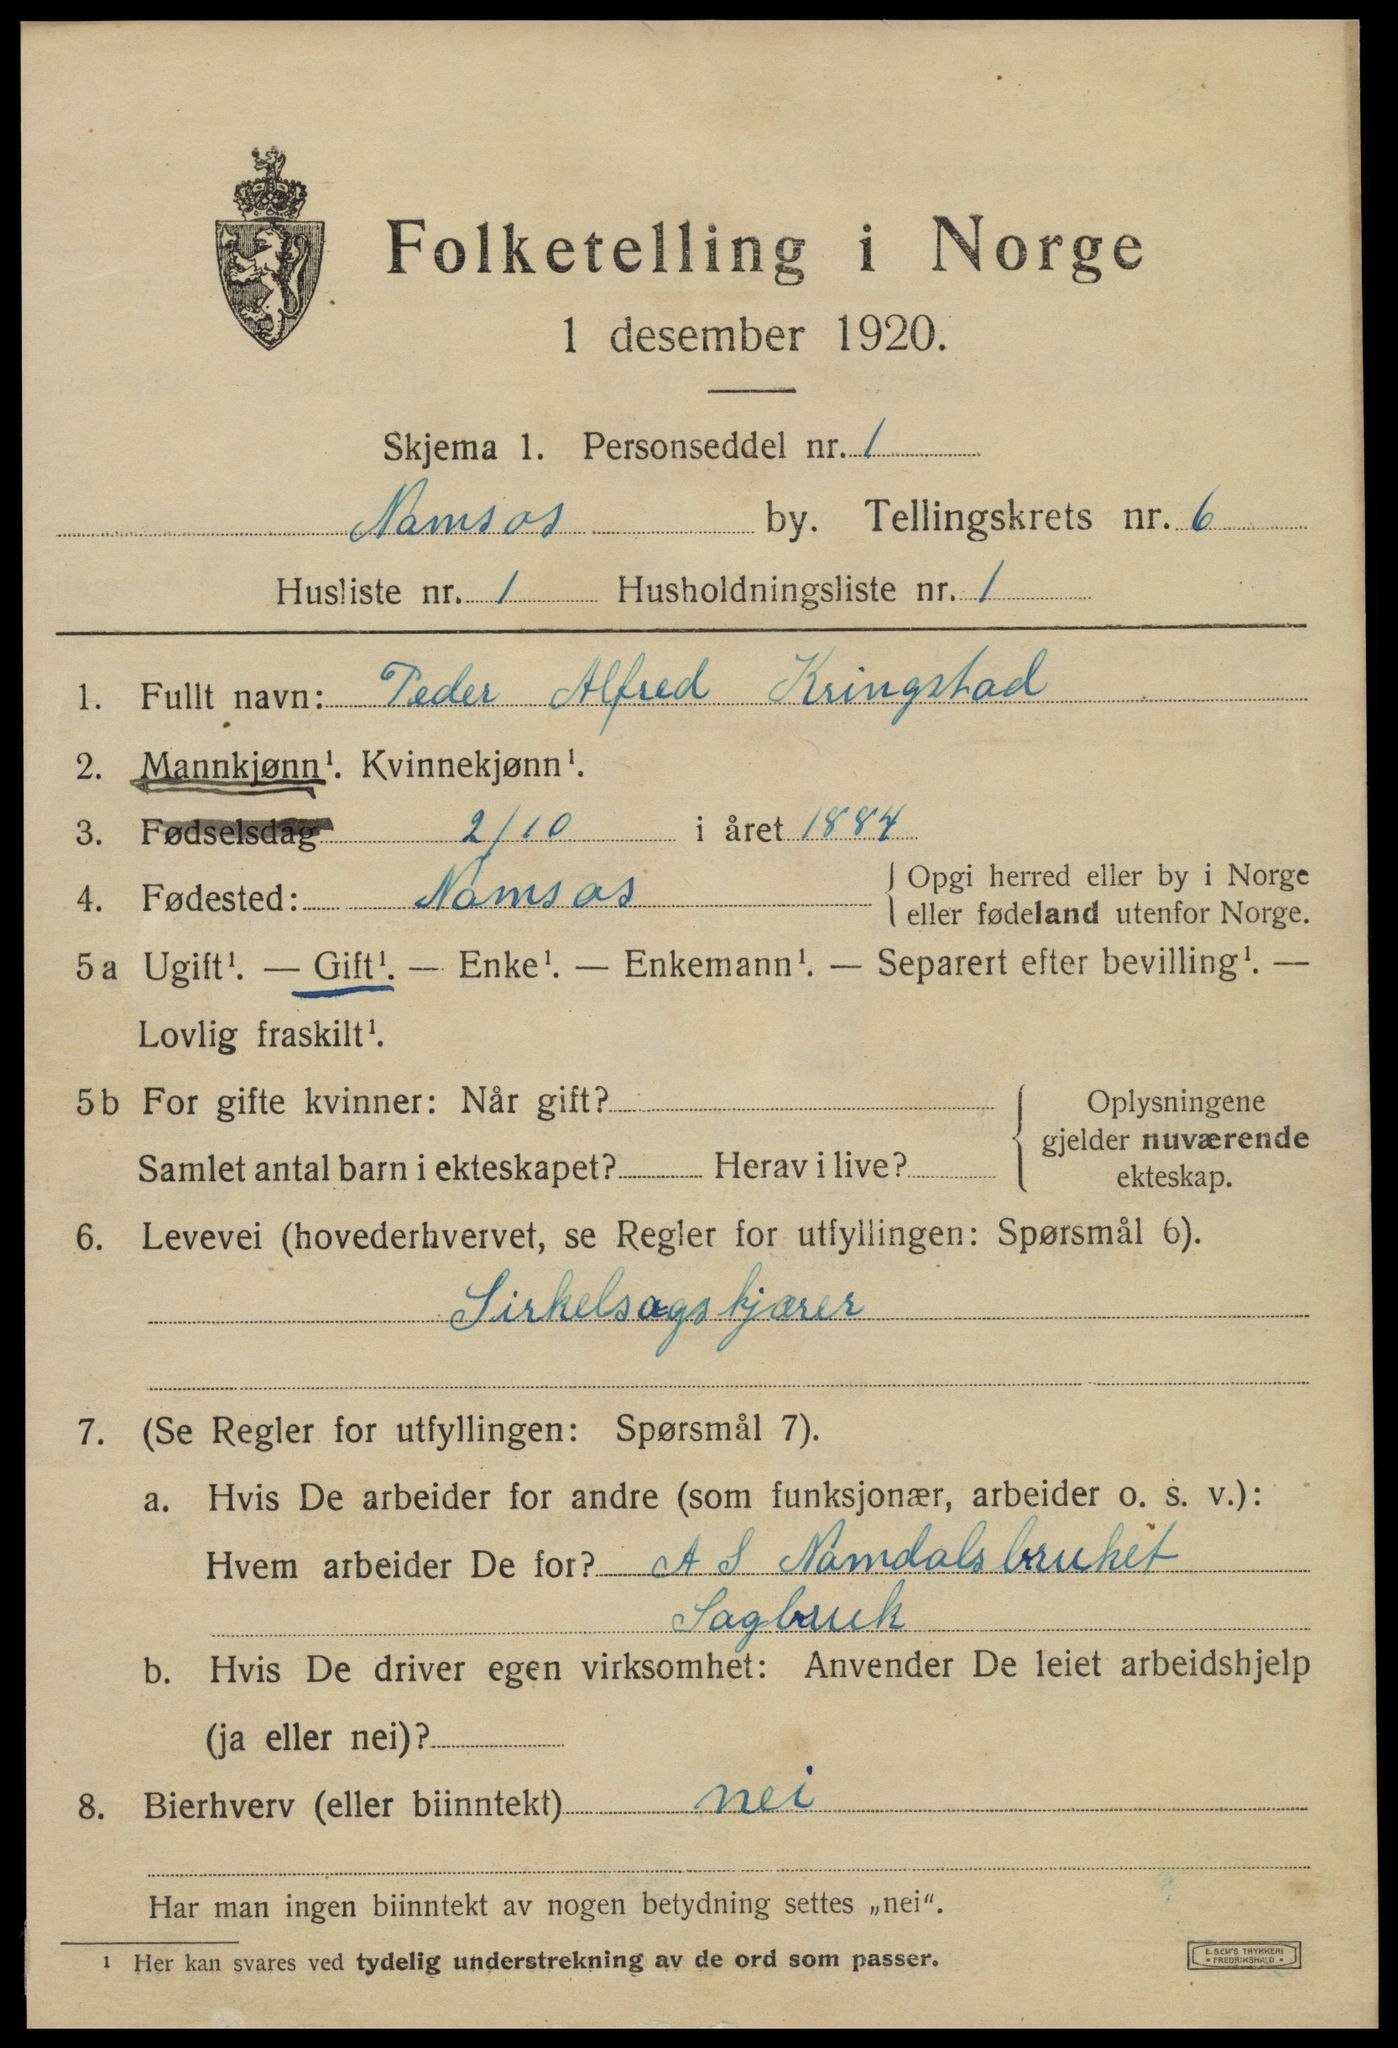 Folketelling i Norge
1 desember 1920.
Skjema 1. Personseddel nr. 1
Namsos by. Tellingskrets nr. 6
Husliste nr. 1 Husholdningsliste nr. 1
1. Fullt navn: Peder Alfred Kringstad
2. Mannkjønn¹. Kvinnekjønn¹.
3. Fødselsdag 2/10 i året 1884
4. Fødested: Namsos { Opgi herred eller by i Norge
eller fødeland utenfor Norge.
5a Ugift¹. — Gift¹. — Enke¹. — Enkemann¹. — Separert efter bevilling¹. —
Lovlig fraskilt¹.
5b For gifte kvinner: Når gift?
Samlet antal barn i ekteskapet? Herav i live?
{ Oplysningene
gjelder nuværende
ekteskap.
6. Levevei (hovederhvervet, se Regler for utfyllingen: Spørsmål 6).
Sirkelsagskjærer
7. (Se Regler for utfyllingen: Spørsmål 7).
a. Hvis De arbeider for andre (som funksjonær, arbeider o. s. v.):
Hvem arbeider De for? A S Namdalsbruket
Sagbruk
b. Hvis De driver egen virksomhet: Anvender De leiet arbeidshjelp
(ja eller nei)?
8. Bierhverv (eller biinntekt) nei
Har man ingen biinntekt av nogen betydning settes „nei“.
¹ Her kan svares ved tydelig understrekning av de ord som passer.
E. SEM'S TRYKKERI
• FREDRIKSHALD •